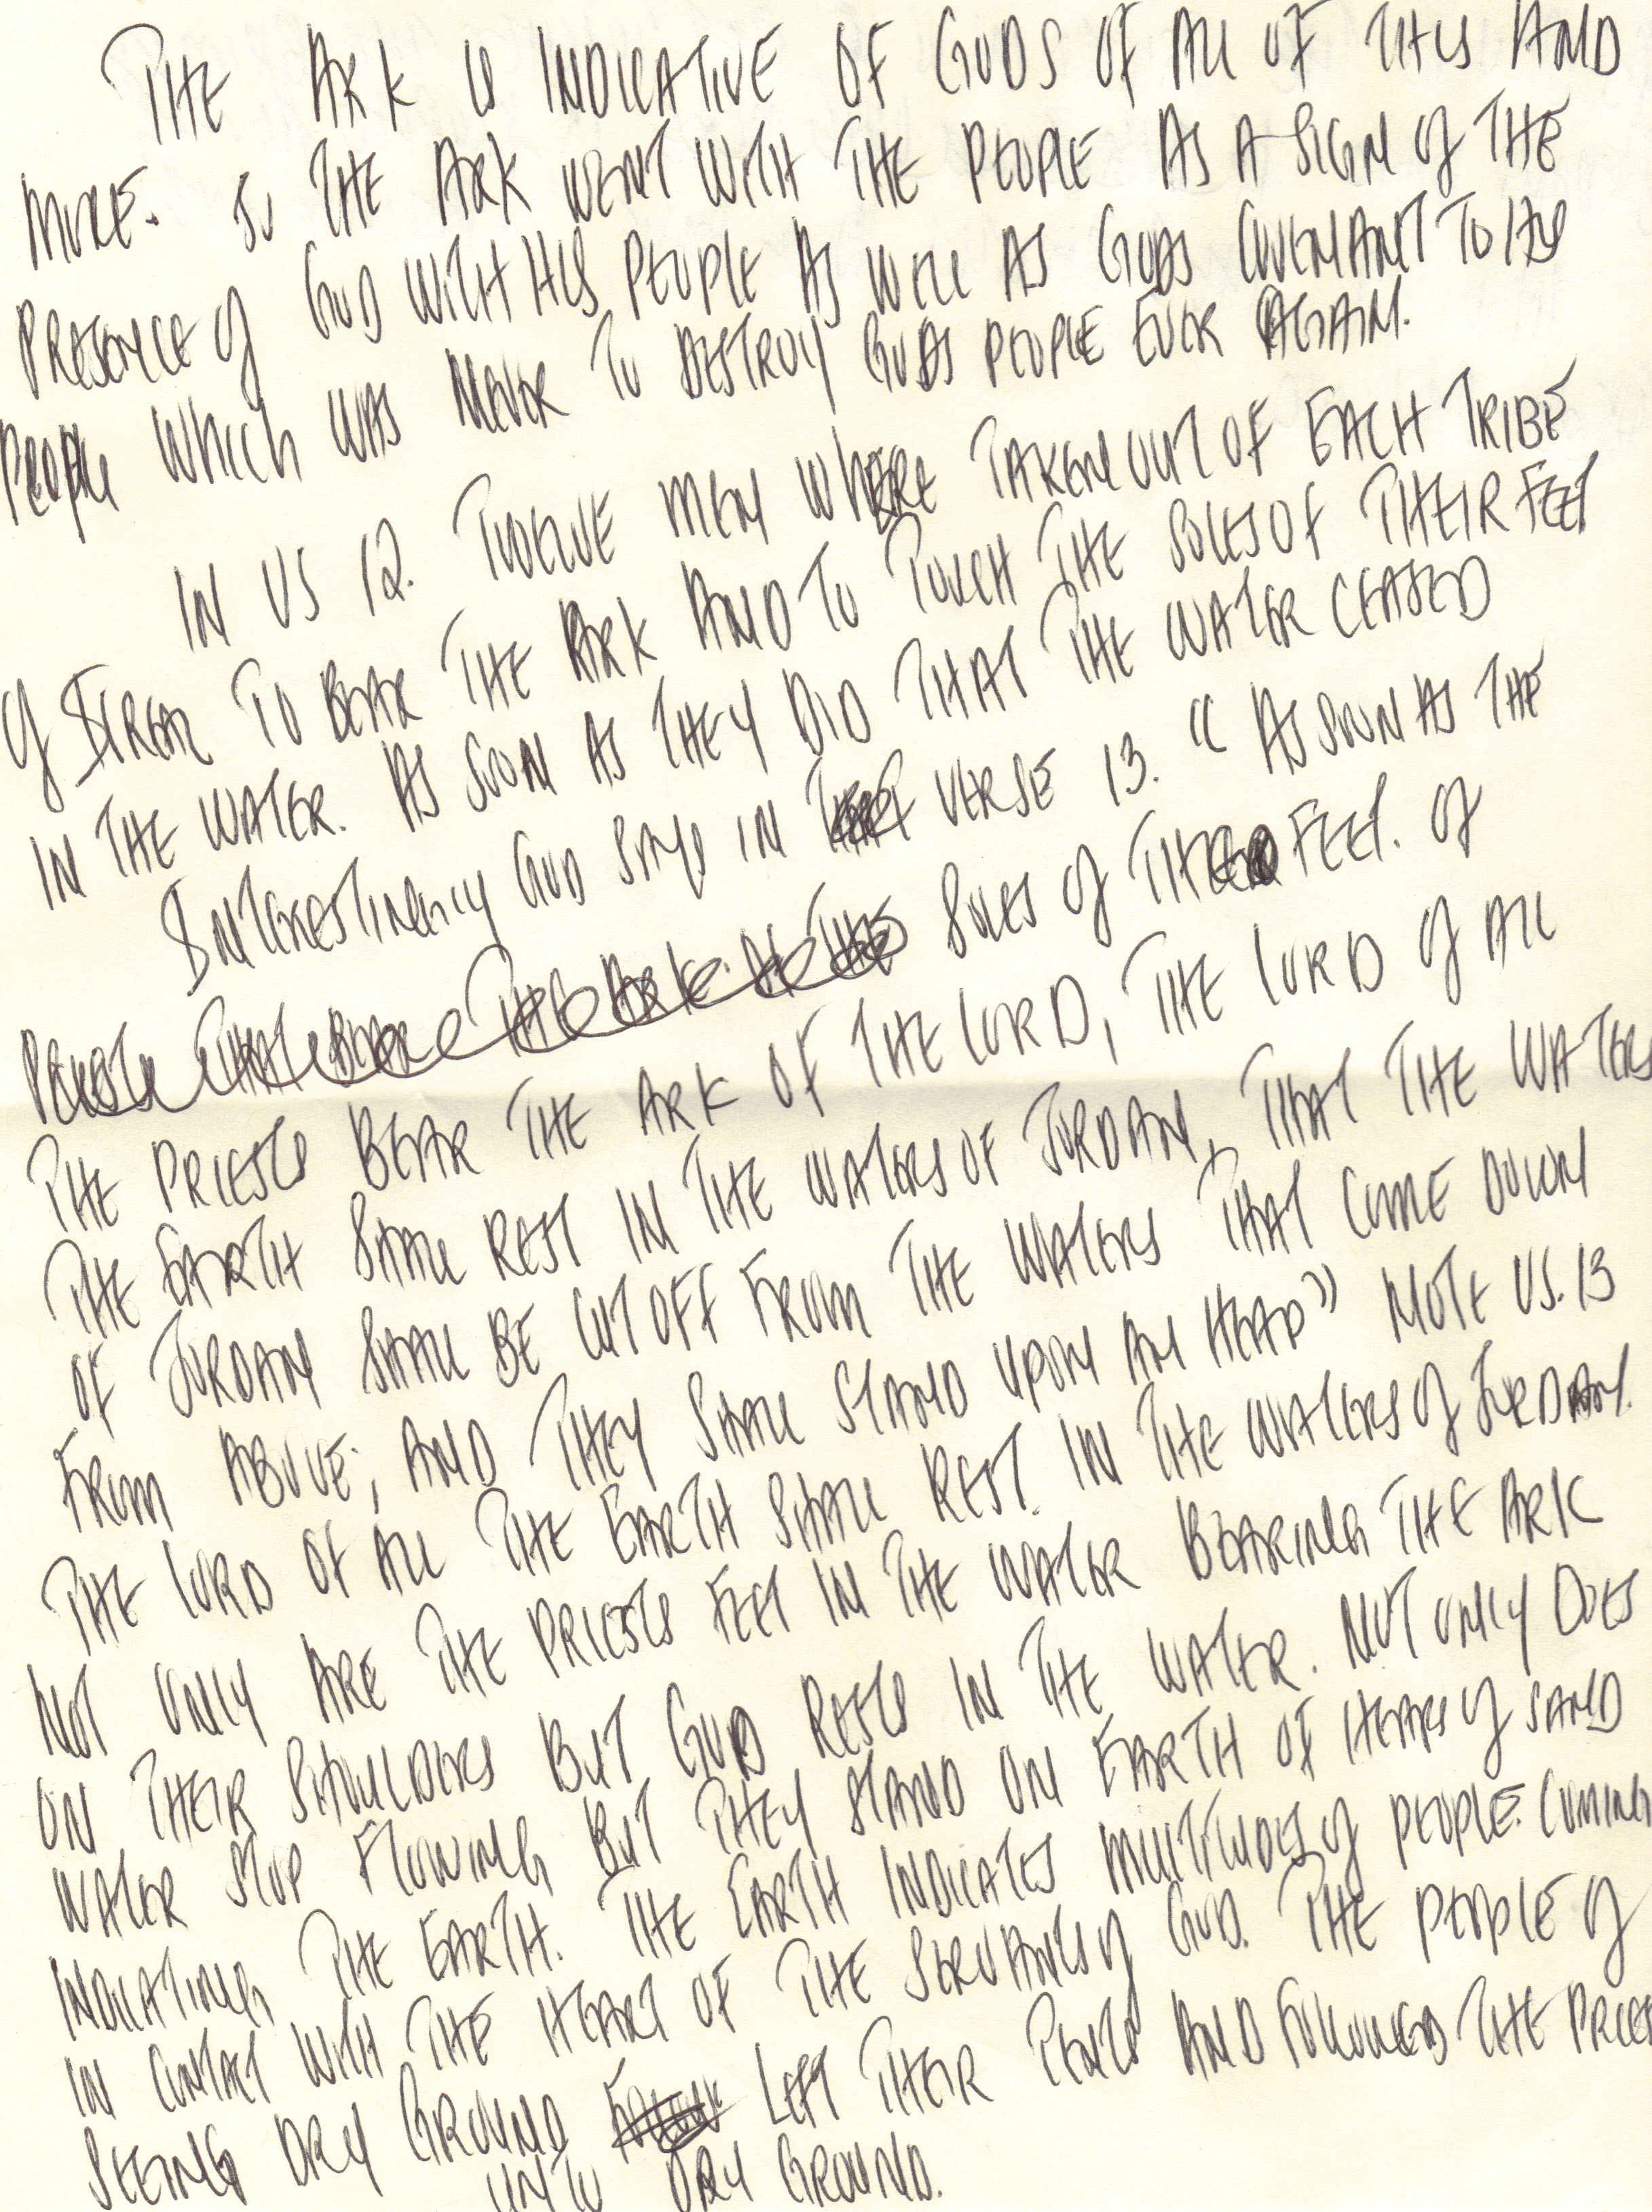 THE ARK IS INDICATIVE OF GODS OF ALL OF THIS AND
MORE. SO THE ARK WENT WITH THE PEOPLE AS A SIGN OF THE
PRESENCE OF GOD WITH HIS PEOPLE AS WELL AS GODS COVENANT TO HIS
PEOPLE WHICH WAS NEVER TO DESTROY GODS PEOPLE EVER AGAIN.
IN VS 12. TWELVE MEN WHERE TAKEN OUT OF EACH TRIBE
OF ISREAL TO BEAR THE ARK AND TO TOUCH THE SOLES OF THEIR FEET
IN THE WATER. AS SOON AS THEY DID THAT THE WATER CEASED
INTERESTINGLY GOD SAYS IN VERSE 13. "AS SOON AS THE
PRIESTS THAT BEAR THE ARK AS THE SOLES OF THE FEET. OF
THE PRIESTS BEAR THE ARK OF THE LORD, THE LORD OF ALL
THE EARTH SHALL REST IN THE WATERS OF JORDAN, THAT THE WATERS
OF JORDAN SHALL BE CUT OFF FROM THE WATERS THAT COME DOWN
FROM ABOVE; AND THEY SHALL STAND UPON AN HEAP" NOTE VS. 13
THE LORD OF ALL THE EARTH SHALL REST IN THE WATERS OF JORDAN.
NOT ONLY ARE THE PRIESTS FEET IN THE WATER BEARING THE ARK
ON THEIR SHOULDERS BUT GOD RESTS IN THE WATER. NOT ONLY DOES
WATER STOP FLOWING BUT THEY STAND ON EARTH OF HEAPS OF SAND
INDICATING THE EARTH. THE EARTH INDICATES MULTITUDES OF PEOPLE COMING
IN CONTACT WITH THE HEART OF THE SERVANTS OF GOD. THE PEOPLE OF
SEEING DRY GROUND LEFT THEIR TENTS AND FOLLOWED THE PRIEST
UNTO DRY GROUND.